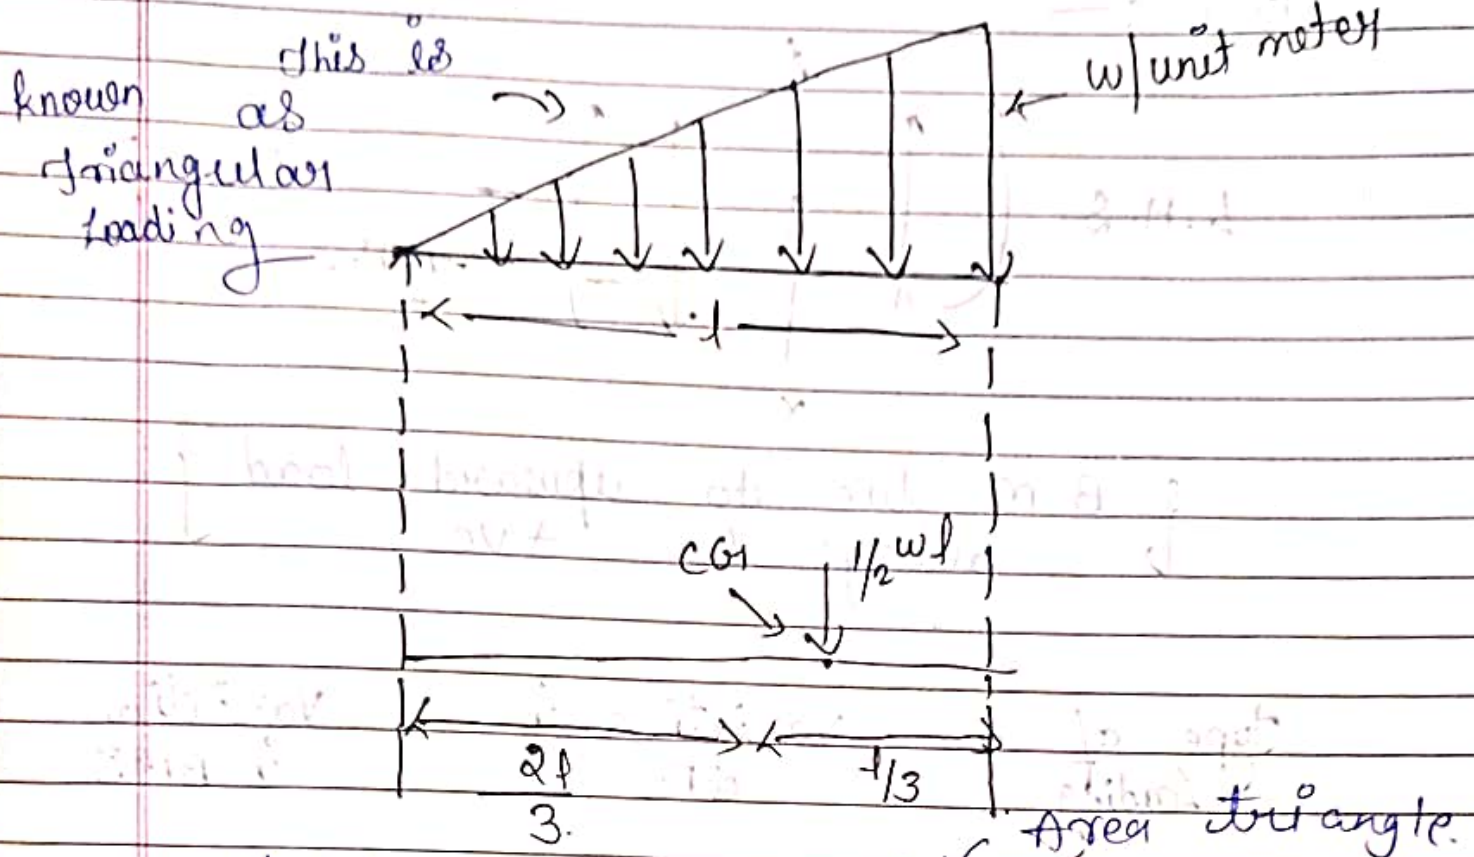 This is
known as
triangular
loading
w/unit meter
l
CG
1/2 wl
2l
3.
l/3
Area triangle.